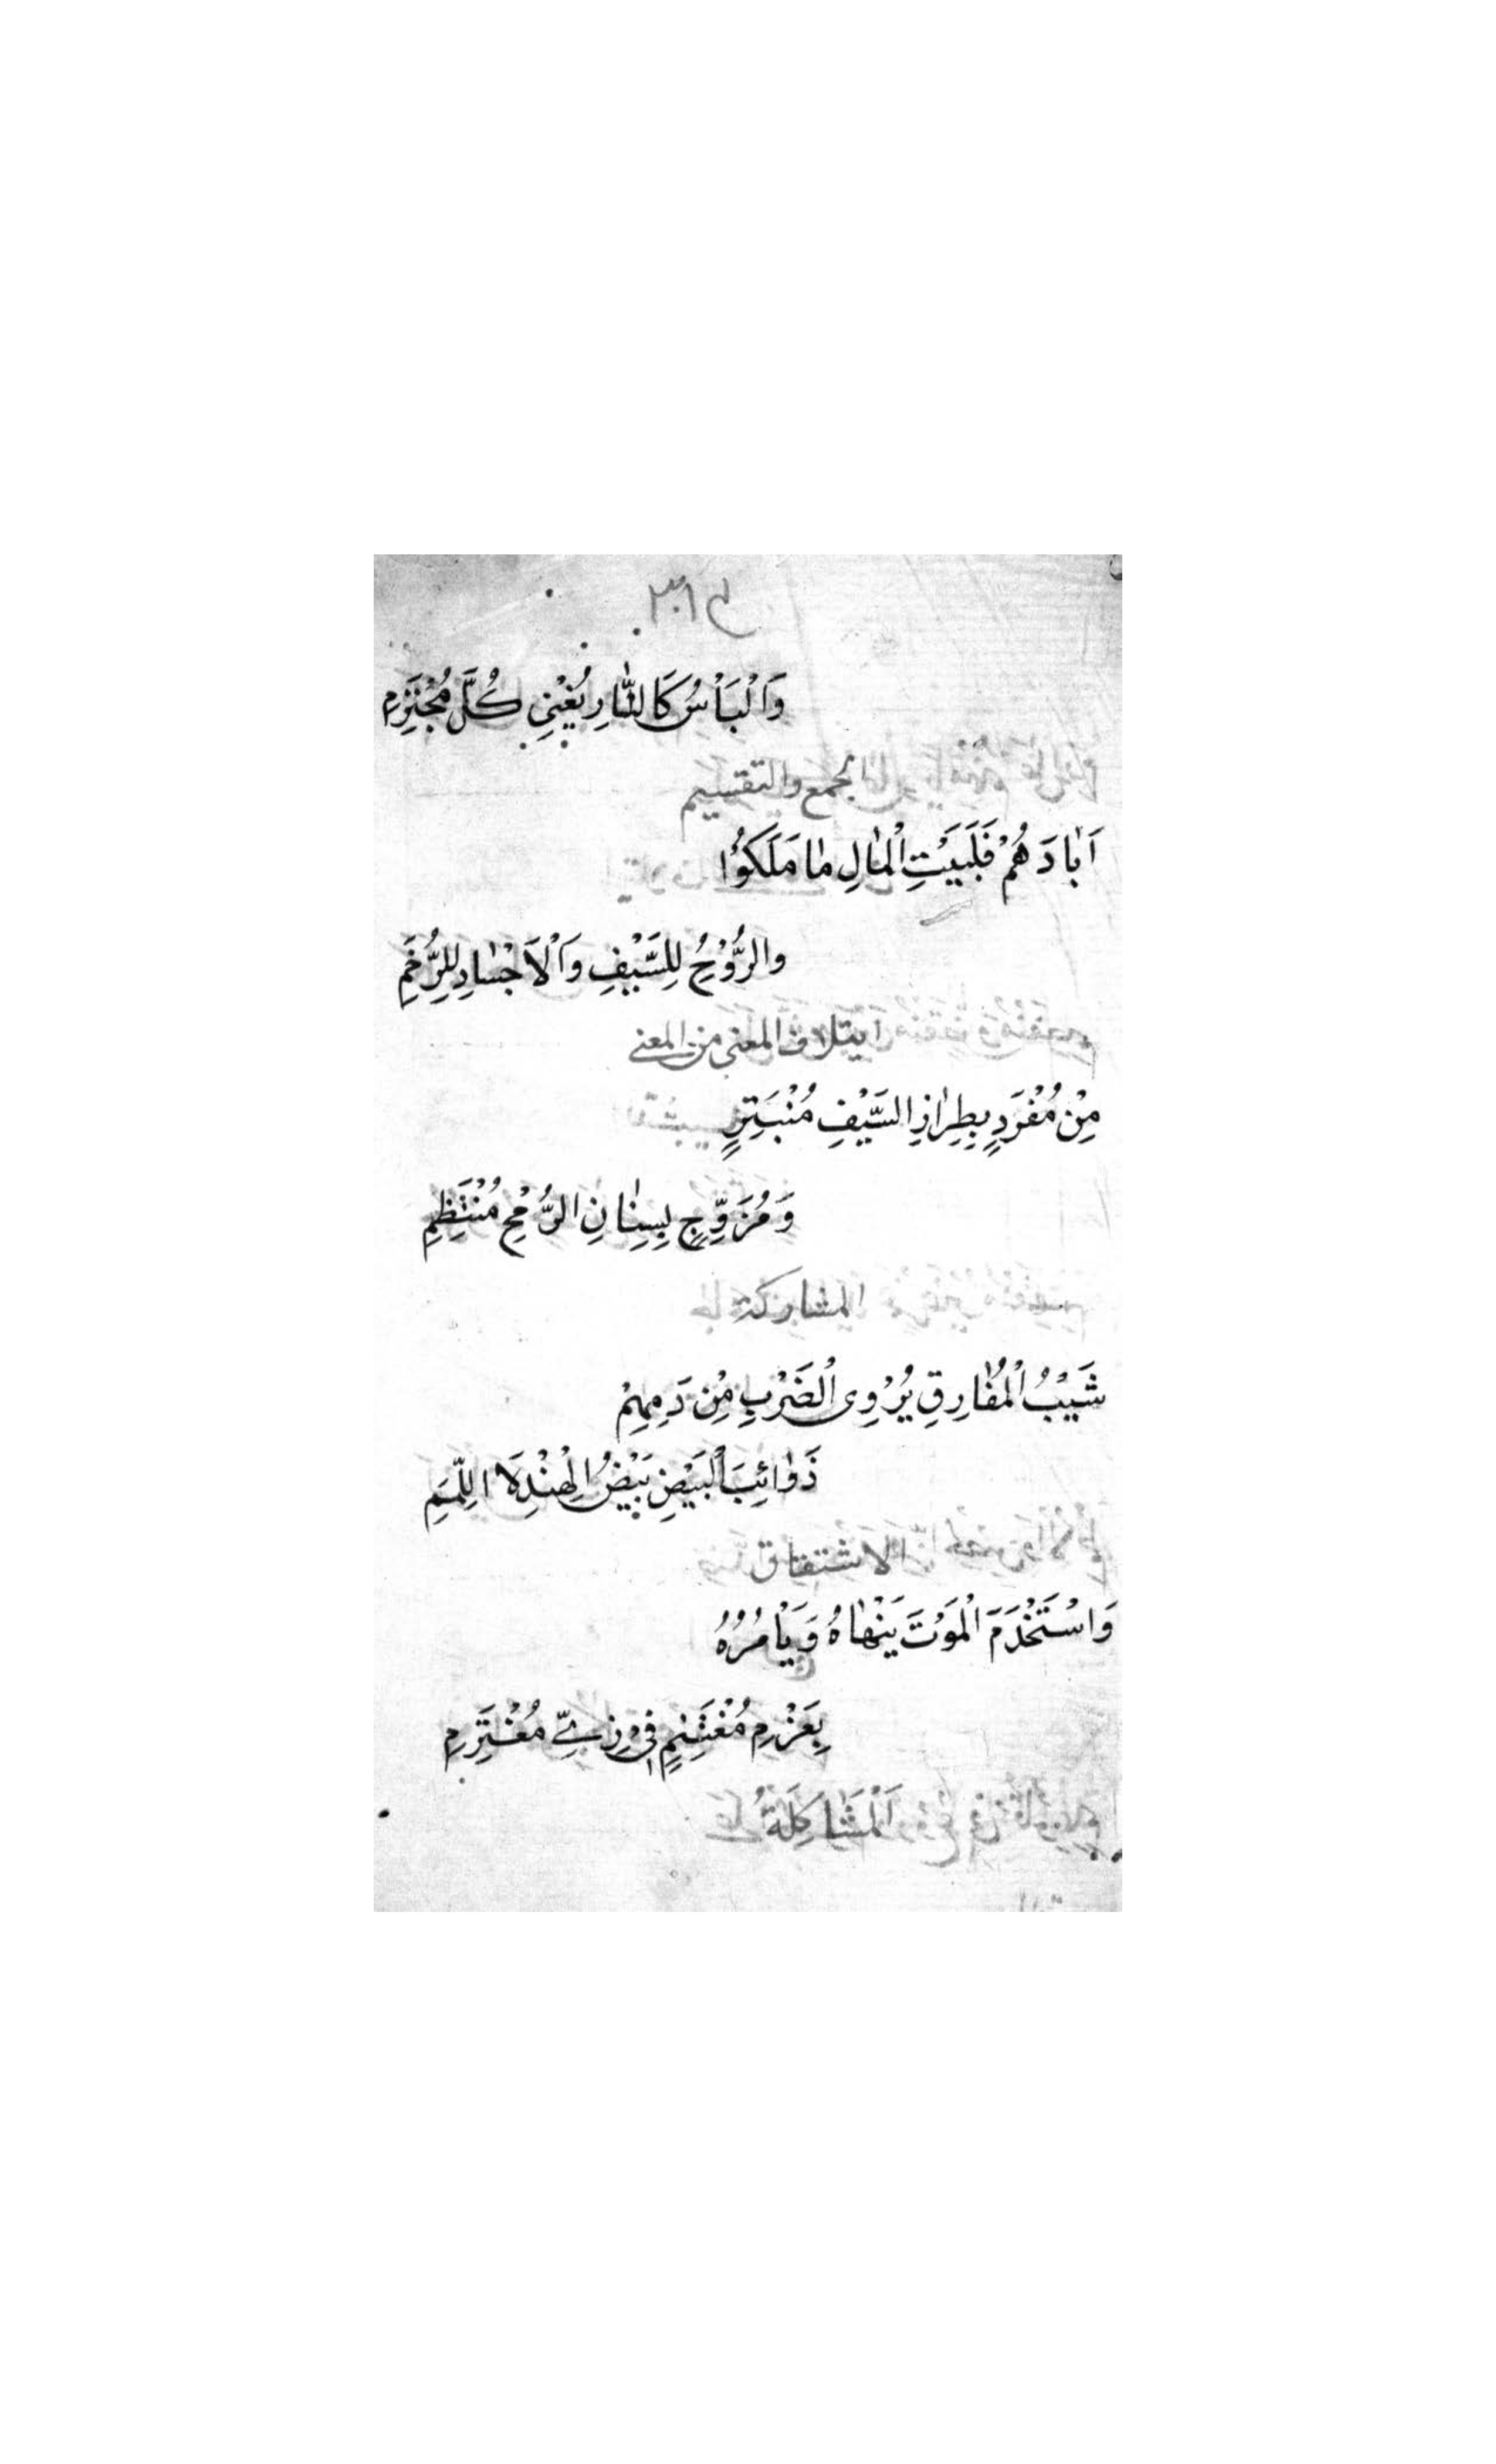 وَالْبَأْسُ كَالنَّارِ يُغْنِي كُلَّ مُجْتَرِمِ
الجمع والتقسيم
اَبَادَهُمْ فَلَبَيْتِ الْمَالِ مَا مَلَكُوْا
والرُّوْحُ لِلسَّيْفِ وَالْاَجْسَادِ لِلرُّخَمِ
ايتلاف المعنى من المعنى
مِنْ مُفْرَدٍ بِطِرَازِ السَّيْفِ مُنْبَتِرٍ
وَمُزَوِّجٍ بِسِنَانِ الرُّمْحِ مُنْتَظِمِ
المشاركة
شَيْبُ الْمُفَارِقِ يُرْوِى الْضَرْبِ مِنْ دَمِهِمْ
ذَوَائِبَ الْبَيْضِ بَيْضُ الْهِنْدِ لَا اللِّمَمِ
الاشتقاق
وَاسْتَخْدَمَ الْمَوْتَ يَنْهَاهُ وَيَأْمُرُهُ
بِعَزْمِ مُغْتَنِمٍ فِي زِيِّ مُغْتَرِمِ
اَلْمَشَاكِلَةُ